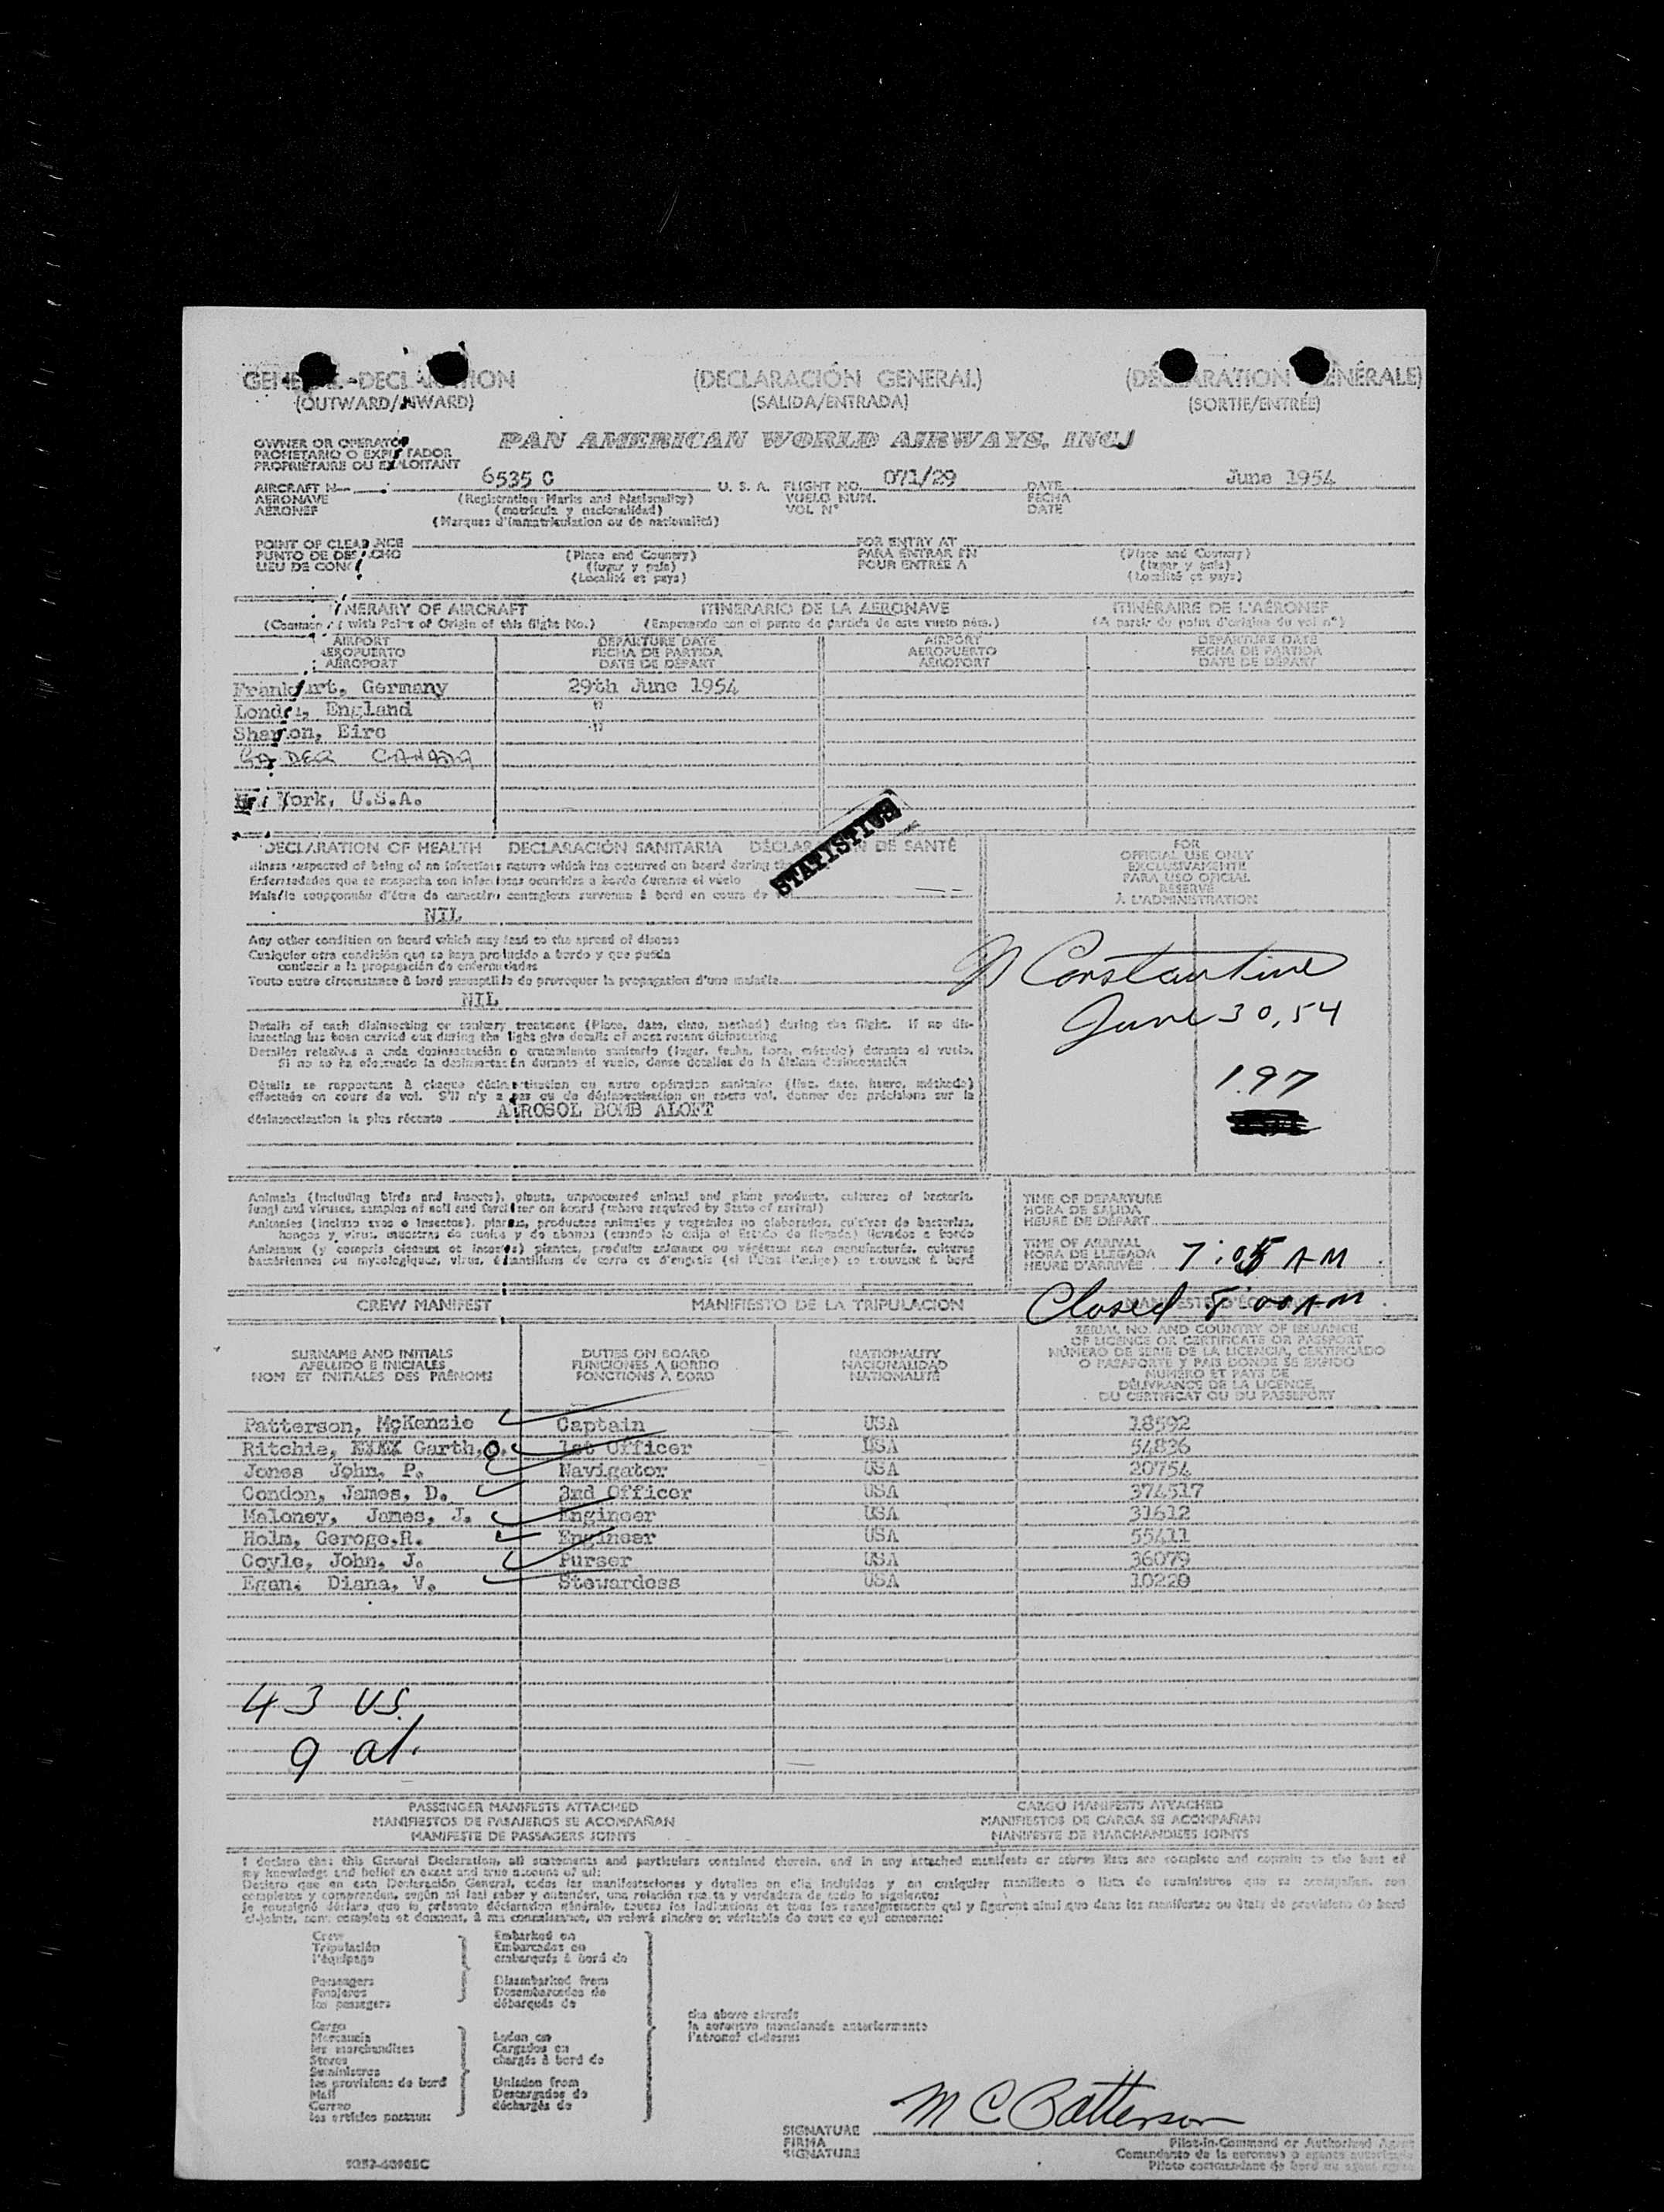 GENE DECL ION (DECLARACIÓN GENERAL) (DÉ ARATION ÉNÉRALE)
(OUTWARD/INWARD) (SALIDA/ENTRADA) (SORTIE/ENTRÉE)
OWNER OR OPERATOR PAN AMERICAN WORLD AIRWAYS, INC.
PROPIETARIO O EXPL TADOR
PROPRIÉTAIRE OU EXPLOITANT
AIRCRAFT N 6535 C U. S. A. FLIGHT NO. 071/29 DATE June 1954
AERONAVE (Registration Marks and Nationality) VUELO NUM. FECHA
AÉRONEF (matrícula y nacionalidad) VOL N° DATE
(Marques d'immatriculation ou de nationalité)
POINT OF CLEAR NCE FOR ENTRY AT
PUNTO DE DES CHO (Place and Country) PARA ENTRAR EN (Place and Country)
LIEU DE CON (lugar y país) POUR ENTRÉE A (lugar y país)
(Localité et pays) (Localité et pays)
NERARY OF AIRCRAFT ITINERARIO DE LA AERONAVE ITINÉRAIRE DE L'AÉRONEF
with Point of Origin of this flight No.) (Empezando con el punto de partida de este vuelo núm.) (A partir du point d'origine du vol n°)
AIRPORT DEPARTURE DATE AIRPORT DEPARTURE DATE
AEROPUERTO FECHA DE PARTIDA AEROPUERTO FECHA DE PARTIDA
AÉROPORT DATE DE DÉPART AÉROPORT DATE DE DÉPART
Frankfurt, Germany 29th June 1954
London, England "
Shannon, Eire "
GA DER CANADA
New York, U.S.A.
STATISTICS
DECLARATION OF HEALTH DECLARACIÓN SANITARIA DÉCLAR N DE SANTÉ
Illness suspected of being of an infectious nature which has occurred on board during the
Enfermedades que se sospecha son infecciosas ocurridas a bordo durante el vuelo
Maladie soupçonnée d'être de caractère contagieux survenue à bord en cours de vol
NIL
FOR
OFFICIAL USE ONLY
EXCLUSIVAMENTE
PARA USO OFICIAL
RESERVÉ
À L'ADMINISTRATION
Any other condition on board which may lead to the spread of disease
Cualquier otra condición que se haya producido a bordo y que pueda
conducir a la propagación de enfermedades
Toute autre circonstance à bord susceptible de provoquer la propagation d'une maladie
NIL
Constantine
June 30, 54
197
Details of each disinsecting or sanitary treatment (Place, date, time, method) during the flight. If no dis-
insecting has been carried out during the flight give details of most recent disinsecting
Detalles relativos a cada desinsectación o tratamiento sanitario (lugar, fecha, hora, método) durante el vuelo.
Si no se ha efectuado la desinsectación durante el vuelo, dense detalles de la última desinsectación
Détails se rapportant à chaque désinsectisation ou autre opération sanitaire (lieu, date, heure, méthode)
effectuée en cours de vol. S'il n'y a pas eu de désinsectisation en cours vol, donner des précisions sur la
désinsectisation la plus récente AIROSOL BOMB ALOFT
Animals (including birds and insects), plants, unprocessed animal and plant products, cultures of bacteria,
fungi and viruses, samples of soil and fertilizer on board (where required by State of arrival)
Animales (incluso aves e insectos), plantas, productos animales y vegetales no elaborados, cultivos de bacterias,
hongos y virus, muestras de suelos y de abonos (cuando lo exija el Estado de llegada) llevados a bordo
Animaux (y compris oiseaux et insectes) plantes, produits animaux ou végétaux non manufacturés, cultures
bactériennes ou mycologiques, virus, échantillons de terre et d'engrais (si l'Etat l'exige) se trouvant à bord
TIME OF DEPARTURE
HORA DE SALIDA
HEURE DE DÉPART
TIME OF ARRIVAL
HORA DE LLEGADA
HEURE D'ARRIVÉE 7:05 AM
Closed 8:00 AM
CREW MANIFEST MANIFIESTO DE LA TRIPULACION
SURNAME AND INITIALS DUTIES ON BOARD NATIONALITY SERIAL NO. AND COUNTRY OF ISSUANCE
APELLIDO E INICIALES FUNCIONES A BORDO NACIONALIDAD OF LICENCE OR CERTIFICATE OR PASSPORT
NOM ET INITIALES DES PRÉNOMS FONCTIONS À BORD NATIONALITÉ NÚMERO DE SERIE DE LA LICENCIA, CERTIFICADO
O PASAPORTE Y PAIS DONDE SE EXPIDO
NUMÉRO ET PAYS DE
DÉLIVRANCE DE LA LICENCE,
DU CERTIFICAT OU DU PASSEPORT
Patterson, McKenzie Captain USA 18592
Ritchie, Garth, O. 1st Officer USA 54836
Jones John, P. Navigator USA 20754
Condon, James, D. 3rd Officer USA 374517
Maloney, James, J. Engineer USA 31612
Holm, Geroge,R. Engineer USA 55411
Coyle, John, J. Purser USA 36079
Egan, Diana, V. Stewardess USA 10220
43 US
9 al.
PASSENGER MANIFESTS ATTACHED CARGO MANIFESTS ATTACHED
MANIFIESTOS DE PASAJEROS SE ACOMPAÑAN MANIFIESTOS DE CARGA SE ACOMPAÑAN
MANIFESTE DE PASSAGERS JOINTS MANIFESTE DE MARCHANDISES JOINTS
I declare that this General Declaration, all statements and particulars contained therein, and in any attached manifests or stores lists are complete and contain to the best of
my knowledge and belief an exact and true account of all:
Declaro que en esta Declaración General, todas las manifestaciones y detalles en ella incluidos y en cualquier manifiesto o lista de suministros que se acompañan, son
completos y comprenden, según mi leal saber y entender, una relación exacta y verdadera de todo lo siguiente:
Je soussigné déclare que la présente déclaration générale, toutes les indications et tous les renseignements qui y figurent ainsi que dans les manifestes ou états de provisions de bord
ci-joints, sont complets et donnent, à ma connaissance, un relevé sincère et véritable de tout ce qui concerne:
Crew Embarked on
Tripulación Embarcados en
l'équipage embarqués à bord de
Passengers Disembarked from
Pasajeros Desembarcados de
les passagers débarqués de
the above aircraft
la aeronave mencionada anteriormente
l'aéronef ci-dessus
Cargo
Mercancía Laden on
les marchandises Cargados en
Stores chargés à bord de
Suministros
les provisions de bord Unladen from
Mail Descargados de
Correo déchargés de
les articles postaux
SIGNATURE M C Patterson
FIRMA Pilot-in-Command or Authorized Agent
SIGNATURE Comandante de la aeronave o agente autorizado
Pilote commandant de bord ou agent agréé